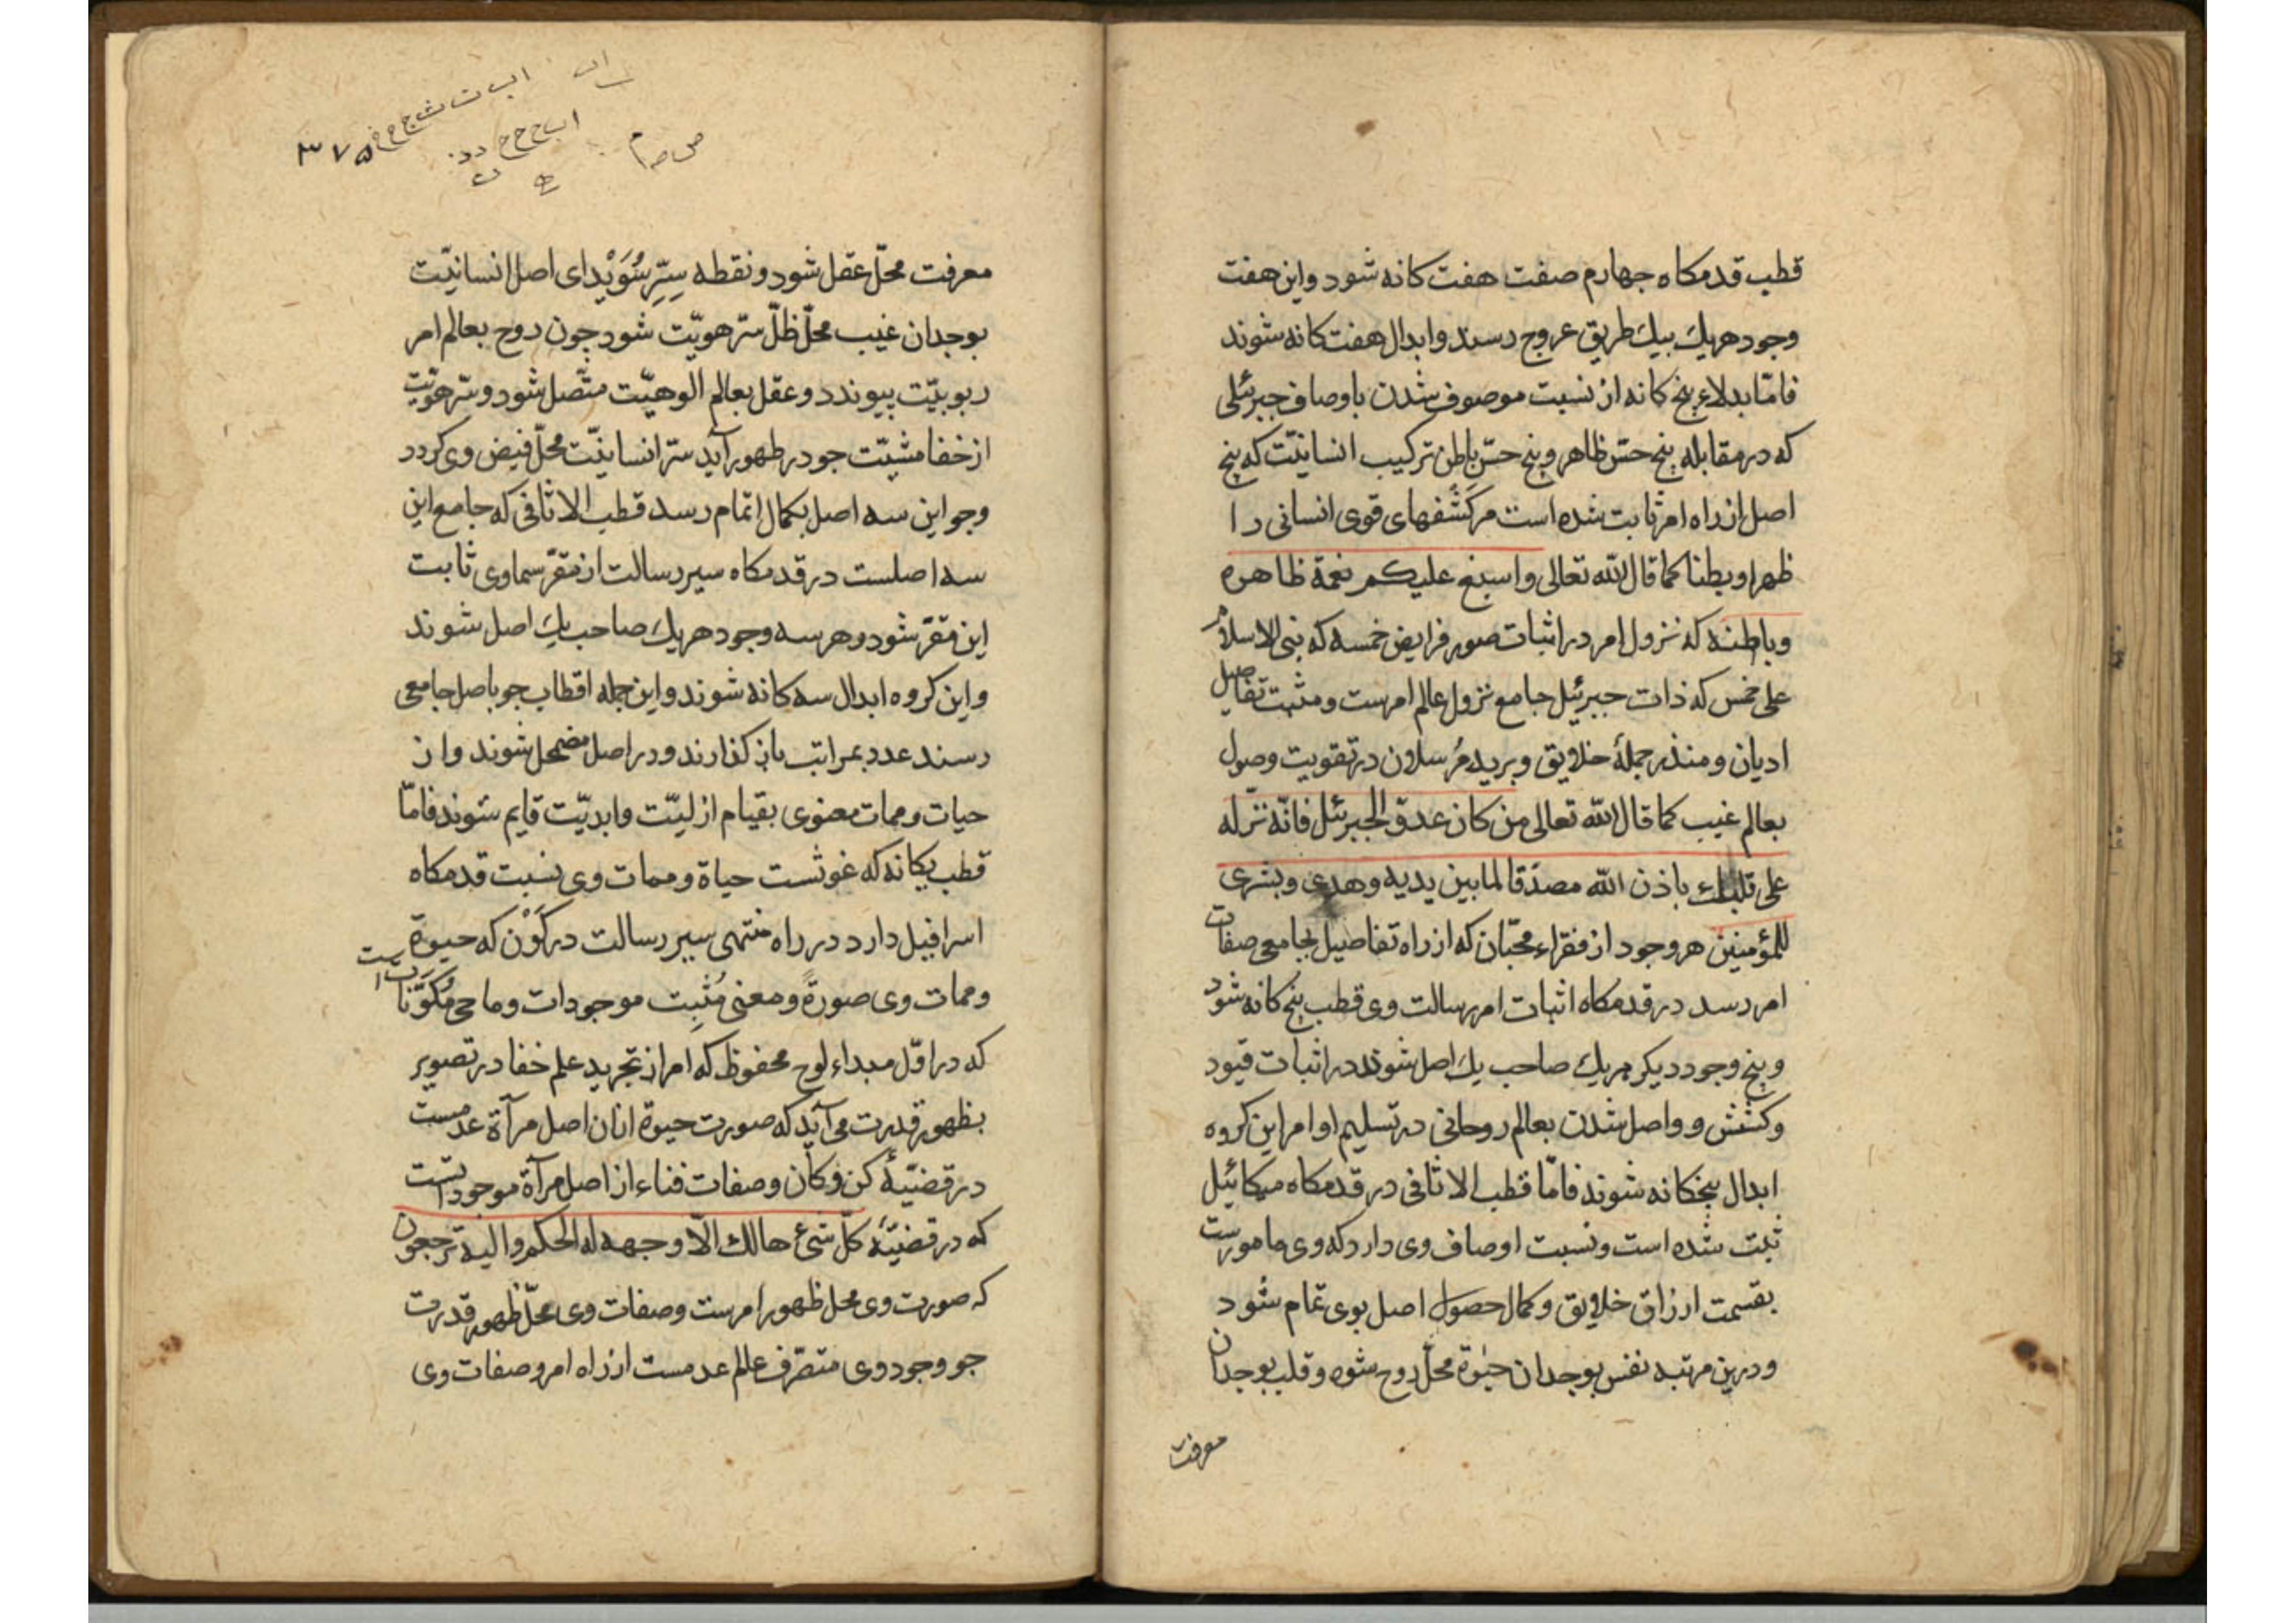 قطب قدمکاه جهارم صفت هفت کانه شود و این هفت
وجود هریك بیك طریق عروج رسند و ابدال هفت کانه شوند
فامّا بدلاء بنج کانه از نسبت موصوف شدن باوصاف جبرئلی
که در مقابله بنج حسّ ظاهر و بنج حسّ باطن ترکیب انسانیّت که بنج
اصل از راه امر ثابت شده است مر کشفهای قوی انسانی را
ظهرا و بطنا کما قال الله تعالی و اسبغ علیکم نعمة ظاهره
و باطنه که نزول امر در اثبات صور فرایض خمسه که بنی الاسلام
علی خمس که ذات جبرئیل جامع نزول عالم امرست و مثبت تفاصیل
ادیان و منذر جملۀ خلایق و برید مُرسلان در تقویت وصول
بعالم غیب کما قال الله تعالی من کان عدوّا لجبرئل فانّه نزّله
علی قلبك باذن الله مصدّقا لما بین یدیه و هدی و بشری
للمؤمنین هر وجود از فقراء محبّان که از راه تفاصیل بجامعی صفات
امر رسد در قدمکاه اثبات امر رسالت وی قطب بنج کانه شود
و بنج وجود دیکر هریك صاحب یك اصل شوند در اثبات قیود
و کشش و واصل شدن بعالم روحانی در تسلیم اوامر این کروه
ابدال بنجکانه شوند فامّا قطب الاثافی در قدمکاه میکائیل
ثبت شده است و نسبت اوصاف وی دارد که وی مامورست
بقسمت ارزاق خلایق و کمال حصول اصل بوی تمام شود
و درین مرتبه نفس بوجدان حیٰوة محلّ روح شود و قلب بوجدان
معرفت
معرفت محلّ عقل شود و نقطه سِرِّ سُوَیْدای اصل انسانیّت
بوجدان غیب محلّ ظلّ سرّ هویّت شود جون روح بعالم امر
ربوبیّت بیوندد و عقل بعالم الوهیّت متّصل شود و سرّ هویّت
از خفا مشیّت جو در ظهور آید سرّ انسانیّت محلّ فیض وی کردد
و جو این سه اصل بکمال اتمام رسد قطب الاثافی که جامع این
سه اصلست در قدمکاه سیر رسالت از مقرّ سماوی ثابت
این مقرّ شود و هر سه وجود هریك صاحب یك اصل شوند
و این کروه ابدال سه کانه شوند و این جمله اقطاب جو باصل جامعی
رسند عدد بمراتب باز کذارند و در اصل مضمحل شوند و از
حیات و ممات معنوی بقیام ازلیّت و ابدیّت قایم شوند فامّا
قطب یکانه که غوثست حیاة و ممات وی نسبت قدمکاه
اسرافیل دارد در راه منتهی سیر رسالت در کَوْن که حیوة
و ممات وی صورةً و معنی مُثبِت موجودات و ماحی مُکَوَّناتست
که در اوّل مبداء لوح محفوظ که امر از تجرید علم خفا در تصویر
بظهور قدرت می آید که صورت حیوة انان اصل مرآة عدمست
در قضیّۀ کن فکان و صفات فناء از اصل مرآة موجوداتست
که در قضیّۀ کلّ شیء هالك الّا وجهه له الحکم و الیه ترجعون
که صورت وی محل ظهور امرست و صفات وی محلّ ظهور قدرت
جو وجود وی متصرّف عالم عدمست از راه امر و صفات وی